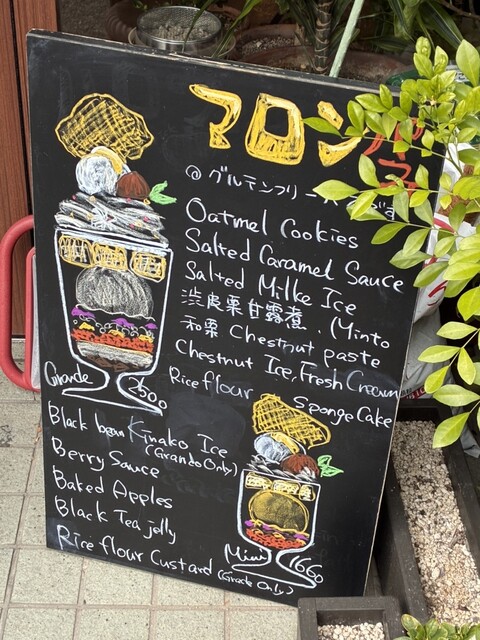 マロンパフェ
@グルテンフリー
Oatmel Cookies
Salted Caramel Sauce
Salted Milke Ice
渋皮栗甘露煮、Minto
和栗 Chestnut paste
Chestnut Ice, Fresh Cream
Rice flour Sponge Cake
Grande 2500
Black bean Kinako Ice
(Grande Only)
Berry Sauce
Baked Apples
Black Tea jelly
Rice flour Custard (Grande Only)
Mini 1660